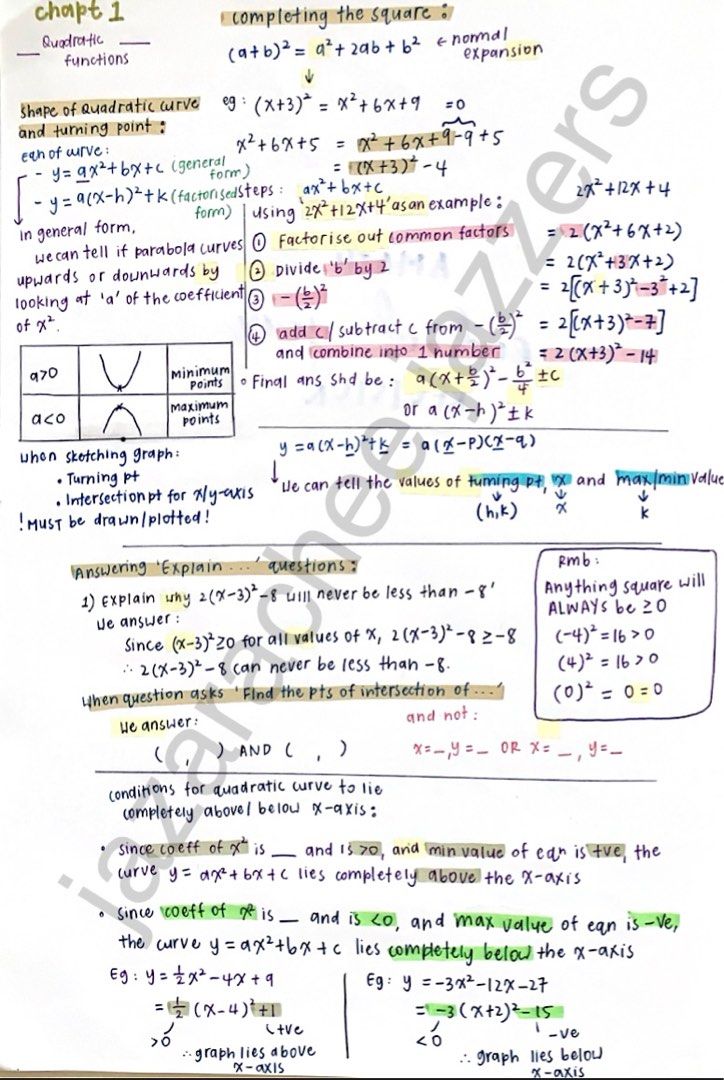 chapt 1
Quadratic
functions
completing the square :
(a+b)² = a² + 2ab + b² ← normal expansion
↓
eg : (x+3)² = x² + 6x + 9
=0
x² + 6x + 5 = x² + 6x + 9 - 9 + 5
= (x+3)² - 4
shape of Quadratic curve
and turning point :
eqn of curve :
- y = ax² + bx + c (general form)
- y = a(x-h)² + k (factorised form)
in general form,
we can tell if parabola curves
upwards or downwards by
looking at 'a' of the coefficient
of x².
a>0 Minimum points
a<0 maximum points
when sketching graph :
• Turning pt
• Intersection pt for x/y-axis
! MUST be drawn/plotted !
steps : ax² + bx + c
using '2x²+12x+4' as an example :
2x² + 12x + 4
① Factorise out common factors = 2(x² + 6x + 2)
② Divide 'b' by 2 = 2(x² + 3x + 2)
③ -(b/2)² = 2[(x+3)² - 3² + 2]
④ add c / subtract c from -(b/2)² = 2[(x+3)² - 7]
and combine into 1 number = 2(x+3)² - 14
• Final ans shd be : a(x + b/2)² - b²/4 ± c
or a(x-h)² ± k
y = a(x-h)² + k = a(x-p)(x-q)
↓ we can tell the values of turning pt, x and max/min value
(h,k) x k
Answering 'Explain ...' questions :
1) Explain why 2(x-3)² - 8 will never be less than -8'
We answer :
Since (x-3)² ≥ 0 for all values of x, 2(x-3)² - 8 ≥ -8
∴ 2(x-3)² - 8 can never be less than -8.
Rmb :
Anything square will
ALWAYS be ≥ 0
(-4)² = 16 > 0
(4)² = 16 > 0
(0)² = 0 = 0
when question asks 'Find the pts of intersection of ...'
We answer :
( , ) AND ( , )
and not :
x=_, y=_ OR x=_, y=_
conditions for quadratic curve to lie
completely above/ below x-axis :
• Since coeff of x² is __ and is >0, and min value of eqn is +ve, the
curve y = ax² + bx + c lies completely above the x-axis
• Since coeff of x² is __ and is <0, and max value of eqn is -ve,
the curve y = ax² + bx + c lies completely below the x-axis
Eg : y = ½x² - 4x + 9
= ½ (x-4)² + 1
>0 +ve
∴ graph lies above
x-axis
Eg : y = -3x² - 12x - 27
= -3(x+2)² - 15
<0 -ve
∴ graph lies below
x-axis
jazarachee jazzers